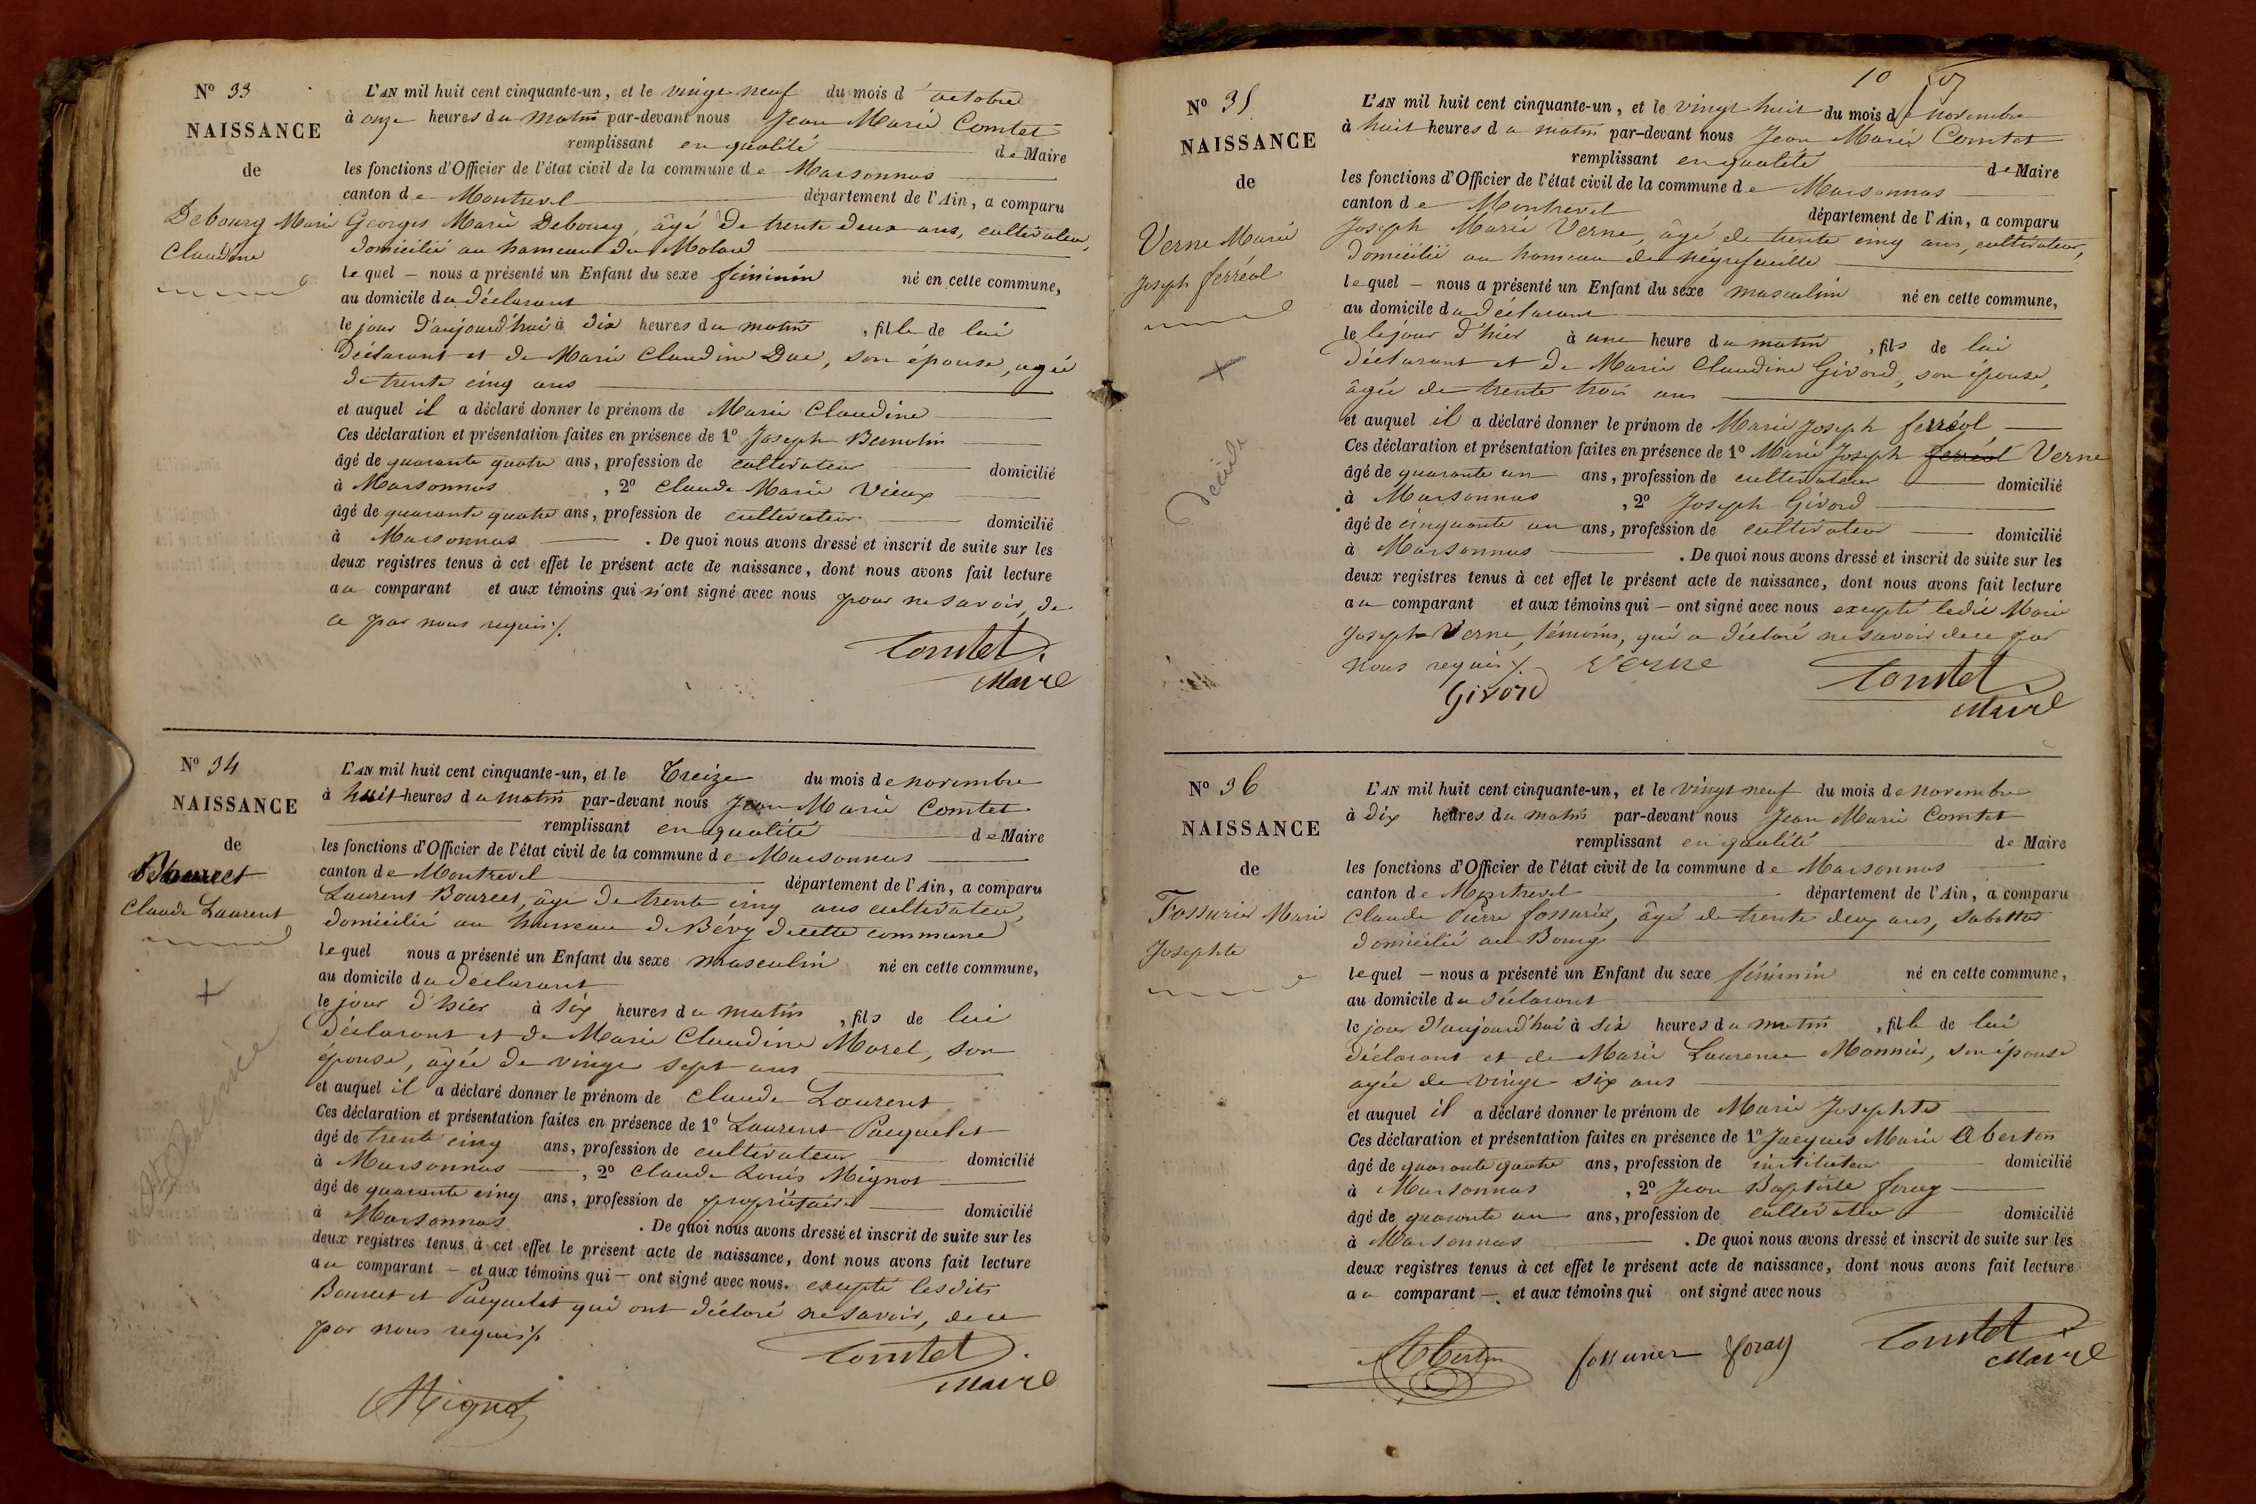 Nº 33
NAISSANCE
de
Debourg Marie
Claudine
L'AN mil huit cent cinquante-un, et le vingt neuf du mois d'octobre
à onze heures du matin par-devant nous Jean Marie Comtet
remplissant en qualité de Maire
les fonctions d'Officier de l'état civil de la commune de Marsonnas
canton de Montrevel département de l'Ain, a comparu
Georges Marie Debourg, âgé de trente deux ans, cultivateur,
domicilié au hameau du Molard
lequel — nous a présenté un Enfant du sexe féminin né en cette commune,
au domicile du déclarant
le jour d'aujourd'hui à dix heures du matin, fille de lui
déclarant et de Marie Claudine Duc, son épouse, agée
de trente cinq ans
et auquel il a déclaré donner le prénom de Marie Claudine
Ces déclaration et présentation faites en présence de 1º Joseph
âgé de quarante quatre ans, profession de cultivateur domicilié
à Marsonnas, 2º Claude Marie Vieux
âgé de quarante quatre ans, profession de cultivateur domicilié
à Marsonnas. De quoi nous avons dressé et inscrit de suite sur les
deux registres tenus à cet effet le présent acte de naissance, dont nous avons fait lecture
au comparant et aux témoins qui n'ont signé avec nous pour ne savoir, de
ce par nous requis ./.
Comtet
Maire
Nº 34
NAISSANCE
de
Bourcet
Claude Laurent
+
L'AN mil huit cent cinquante-un, et le treize du mois de novembre
à huit heures du matin par-devant nous Jean Marie Comtet
remplissant en qualité de Maire
les fonctions d'Officier de l'état civil de la commune de Marsonnas
canton de Montrevel département de l'Ain, a comparu
Laurent Bourcet, âgé de trente cinq ans cultivateur,
domicilié au hameau de Bévy de cette commune
lequel nous a présenté un Enfant du sexe masculin né en cette commune,
au domicile du déclarant
le jour d'hier à six heures du matin, fils de lui
déclarant et de Marie Claudine Morel, son
épouse, âgée de vingt sept ans
et auquel il a déclaré donner le prénom de Claude Laurent
Ces déclaration et présentation faites en présence de 1º Laurent Pacquelet
âgé de trente cinq ans, profession de cultivateur domicilié
à Marsonnas, 2º Claude Louis Mignot
âgé de quarante cinq ans, profession de propriétaire domicilié
à Marsonnas. De quoi nous avons dressé et inscrit de suite sur les
deux registres tenus à cet effet le présent acte de naissance, dont nous avons fait lecture
au comparant — et aux témoins qui — ont signé avec nous. excepté lesdits
Bourcet et Pacquelet qui ont déclaré ne savoir, de ce
par nous requis ./.
Comtet
Maire
Mignot
10
Nº 35
NAISSANCE
de
Verne Marie
Joseph ferréol
+
Décédé
L'AN mil huit cent cinquante-un, et le vingt huit du mois de novembre
à huit heures du matin par-devant nous Jean Marie Comtet
remplissant en qualité de Maire
les fonctions d'Officier de l'état civil de la commune de Marsonnas
canton de Montrevel département de l'Ain, a comparu
Joseph Marie Verne, âgé de trente cinq ans, cultivateur,
domicilié au hameau de négrefeuille
lequel — nous a présenté un Enfant du sexe masculin né en cette commune,
au domicile du déclarant
le le jour d'hier à une heure du matin, fils de lui
déclarant et de Marie Claudine Givord, son épouse,
âgée de trente trois ans
et auquel il a déclaré donner le prénom de Marie Joseph ferréol
Ces déclaration et présentation faites en présence de 1º Marie Joseph ferréol Verne
âgé de quarante un ans, profession de cultivateur domicilié
à Marsonnas, 2º Joseph Givord
âgé de cinquante un ans, profession de cultivateur domicilié
à Marsonnas. De quoi nous avons dressé et inscrit de suite sur les
deux registres tenus à cet effet le présent acte de naissance, dont nous avons fait lecture
au comparant et aux témoins qui — ont signé avec nous excepté ledit Marie
Joseph Verne, témoins, qui a déclaré ne savoir de ce par
nous requis ./. Verne
Comtet
Maire
Givord
Nº 36
NAISSANCE
de
Fossurier Marie
Josephte
L'AN mil huit cent cinquante-un, et le vingt neuf du mois de novembre
à dix heures du matin par-devant nous Jean Marie Comtet
remplissant en qualité de Maire
les fonctions d'Officier de l'état civil de la commune de Marsonnas
canton de Montrevel département de l'Ain, a comparu
Claude Pierre fossurier, âgé de trente deux ans, sabottier
domicilié au Bourg
lequel — nous a présenté un Enfant du sexe féminin né en cette commune,
au domicile du déclarant
le jour d'aujourd'hui à six heures du matin, fille de lui
déclarant et de Marie Laurence Monnier, son épouse
agée de vingt six ans
et auquel il a déclaré donner le prénom de Marie Josephte
Ces déclaration et présentation faites en présence de 1º Jacques Marie Oberton
âgé de quarante quatre ans, profession de instituteur domicilié
à Marsonnas, 2º Jean Baptiste foray
âgé de quarante un ans, profession de cultivateur domicilié
à Marsonnas. De quoi nous avons dressé et inscrit de suite sur les
deux registres tenus à cet effet le présent acte de naissance, dont nous avons fait lecture
au comparant — et aux témoins qui ont signé avec nous
fossurier foray
Comtet
Maire